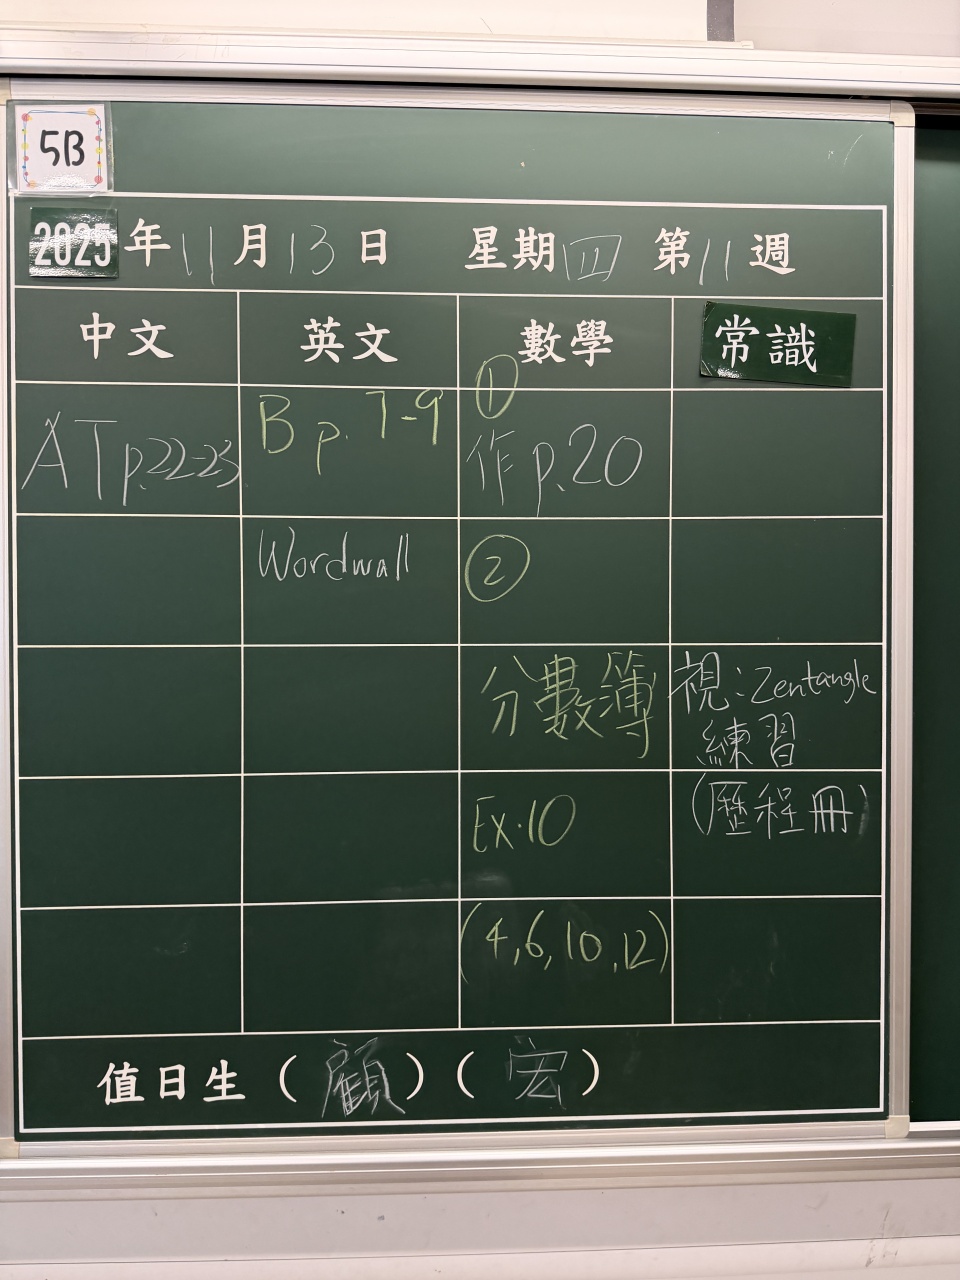 5B
2025年11月13日 星期四 第11週
中文 英文 數學 常識
AT p.22-23 B p. 7-9 ① 作 p.20
Wordwall ②
分數簿 視：Zentangle 練習
Ex.10 (歷程冊)
(4,6,10,12)
值日生（顧）（宏）